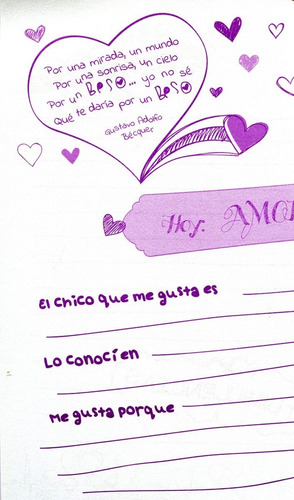 Por una mirada, un mundo
Por una sonrisa, un cielo
Por un BeSO... yo no sé
Qué te daría por un BeSO
Gustavo Adolfo
Bécquer
Hoy: AMO
El chico que me gusta es
Lo conocí en
Me gusta porque